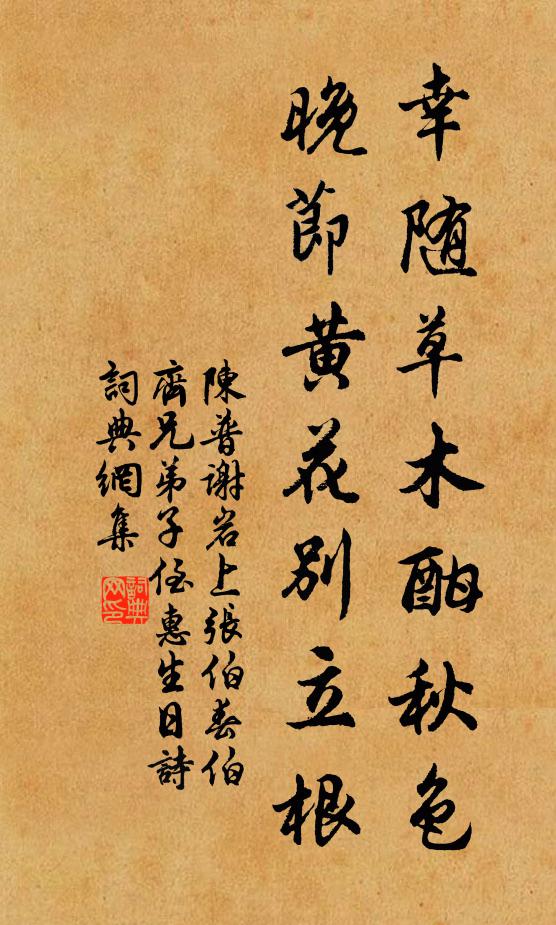 幸随草木酣秋色
晚節黄花别立根
陳普謝岩上張伯春伯
齊兄弟子侄惠生日詩
詞典網集
詞典网印